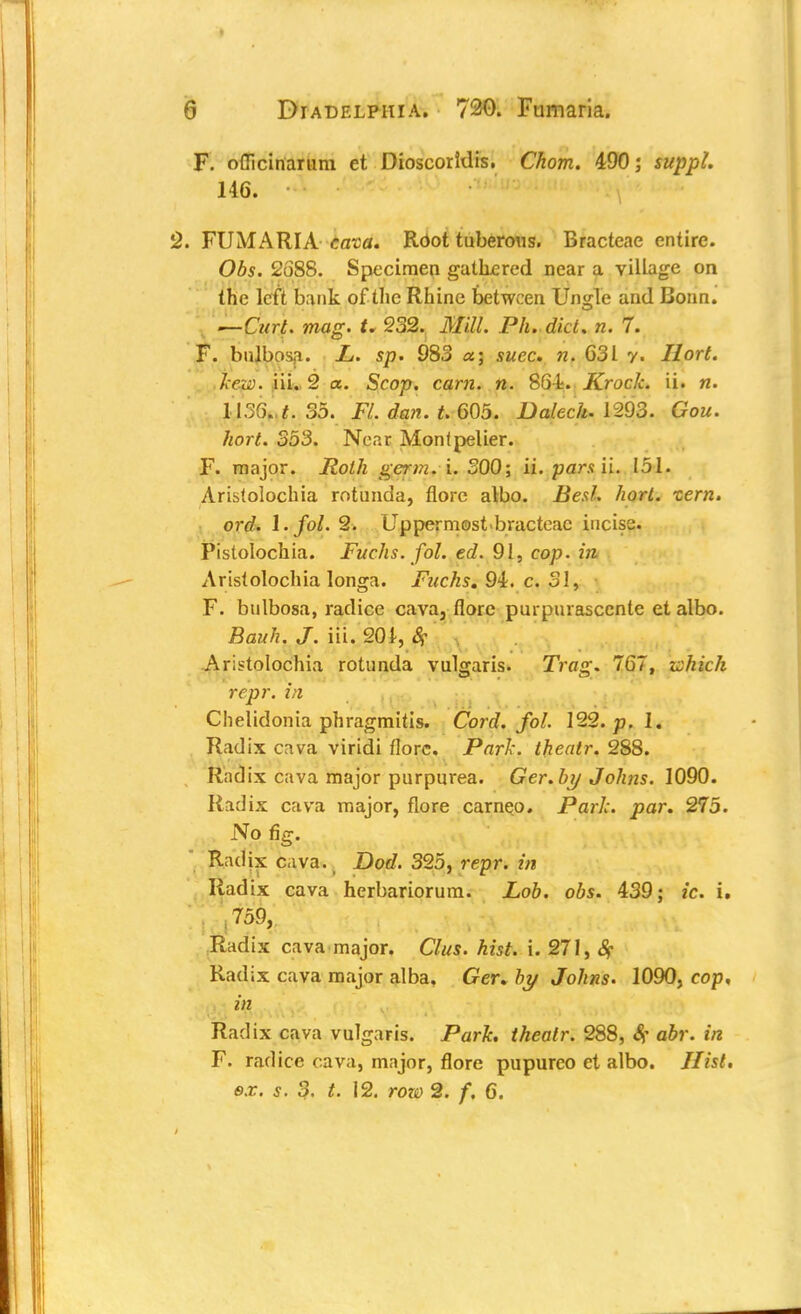 6 DIADELPHIA. 720. Fumaria.
F. officinarum et Dioscoridis. Chom. 490; suppl.
146.
2. FUMARIA cava. Root tuberous. Bracteae entire.
Obs. 2688. Specimen gathered near a village on
the left bank of the Rhine between Ungle and Bonn.
—Curt. mag. t. 232. Mill. Ph. dict. n. 7.
F. bulbosa. L. sp. 983 α; suec. n. 631 γ. Hort.
kew. iii. 2 α. Scop. carn. n. 864. Krock. ii. n.
1136. t. 35. Fl. dan. t. 605. Dalech. 1293. Gou.
hort. 353. Near Montpelier.
F. major. Roth germ. i. 300; ii. pars ii. 151.
Aristolochia rotunda, flore albo. Besl. hort. vern.
ord. 1. fol. 2. Uppermost bracteae incise.
Pistolochia. Fuchs. fol. ed. 91, cop. in
Aristolochia longa. Fuchs. 94. c. 31,
F. bulbosa, radice cava, flore purpurascente et albo.
Bauh. J. iii. 204, &
Aristolochia rotunda vulgaris. Trag. 767, which
repr. in
Chelidonia phragmitis. Cord. fol. 122. p. 1.
Radix cava viridi flore. Park. theatr. 288.
Radix cava major purpurea. Ger. by Johns. 1090.
Radix cava major, flore carneo. Park. par. 275.
No fig.
Radix cava. Dod. 325, repr. in
Radix cava herbariorum. Lob. obs. 439; ic. i.
759,
Radix cava major. Clus. hist. i. 271, &
Radix cava major alba. Ger. by Johns. 1090, cop.
in
Radix cava vulgaris. Park. theatr. 288, & abr. in
F. radice cava, major, flore pupureo et albo. Hist.
ox. s. 3. t. 12. row 2. f. 6.